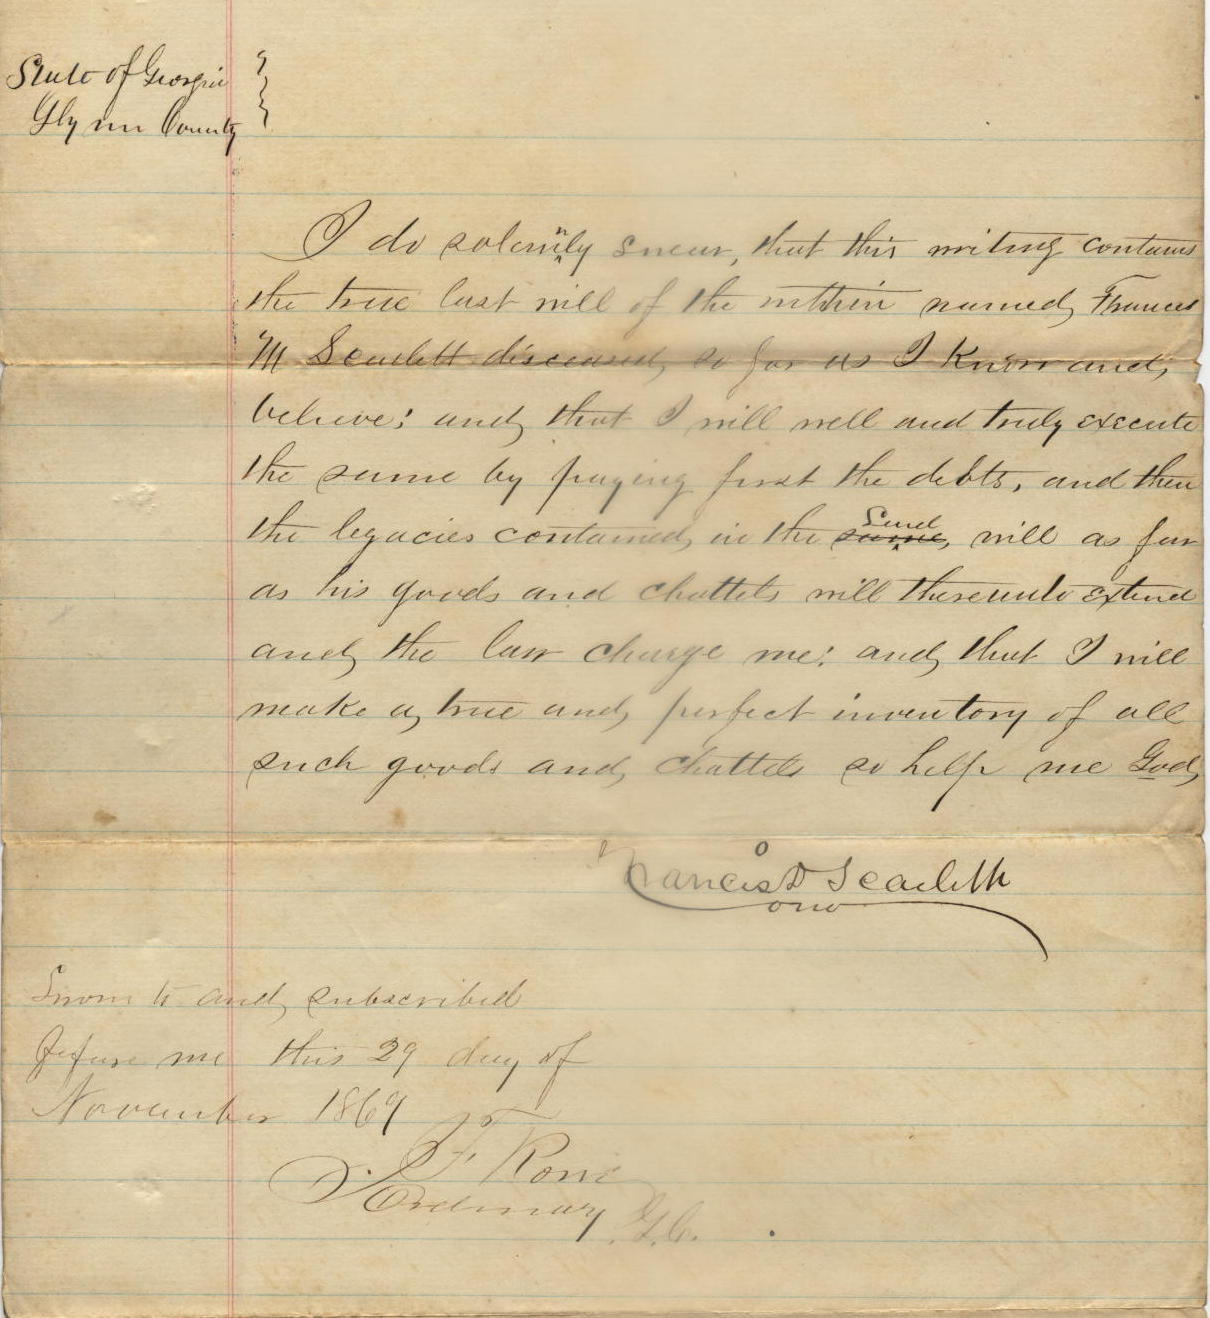 State of Georgia
Glynn County
I do solemnly swear, that this writing contains
the true last will of the within named, Frances
M Scarlett disceased, so far as I know and,
believe; and, that I will well and truly execute
the same by paying first the debts, and then
the legacies contained, in the same, said will as far
as his goods and chattels will thereunto extend
and, the law charge me; and, that I will
make a, true and, perfect inventory of all
such goods and, chattels so help me God,
Francis D Scarlett
Sworn to and, subscribed
before me this 29 day of
November 1869
Ordinary G.C.